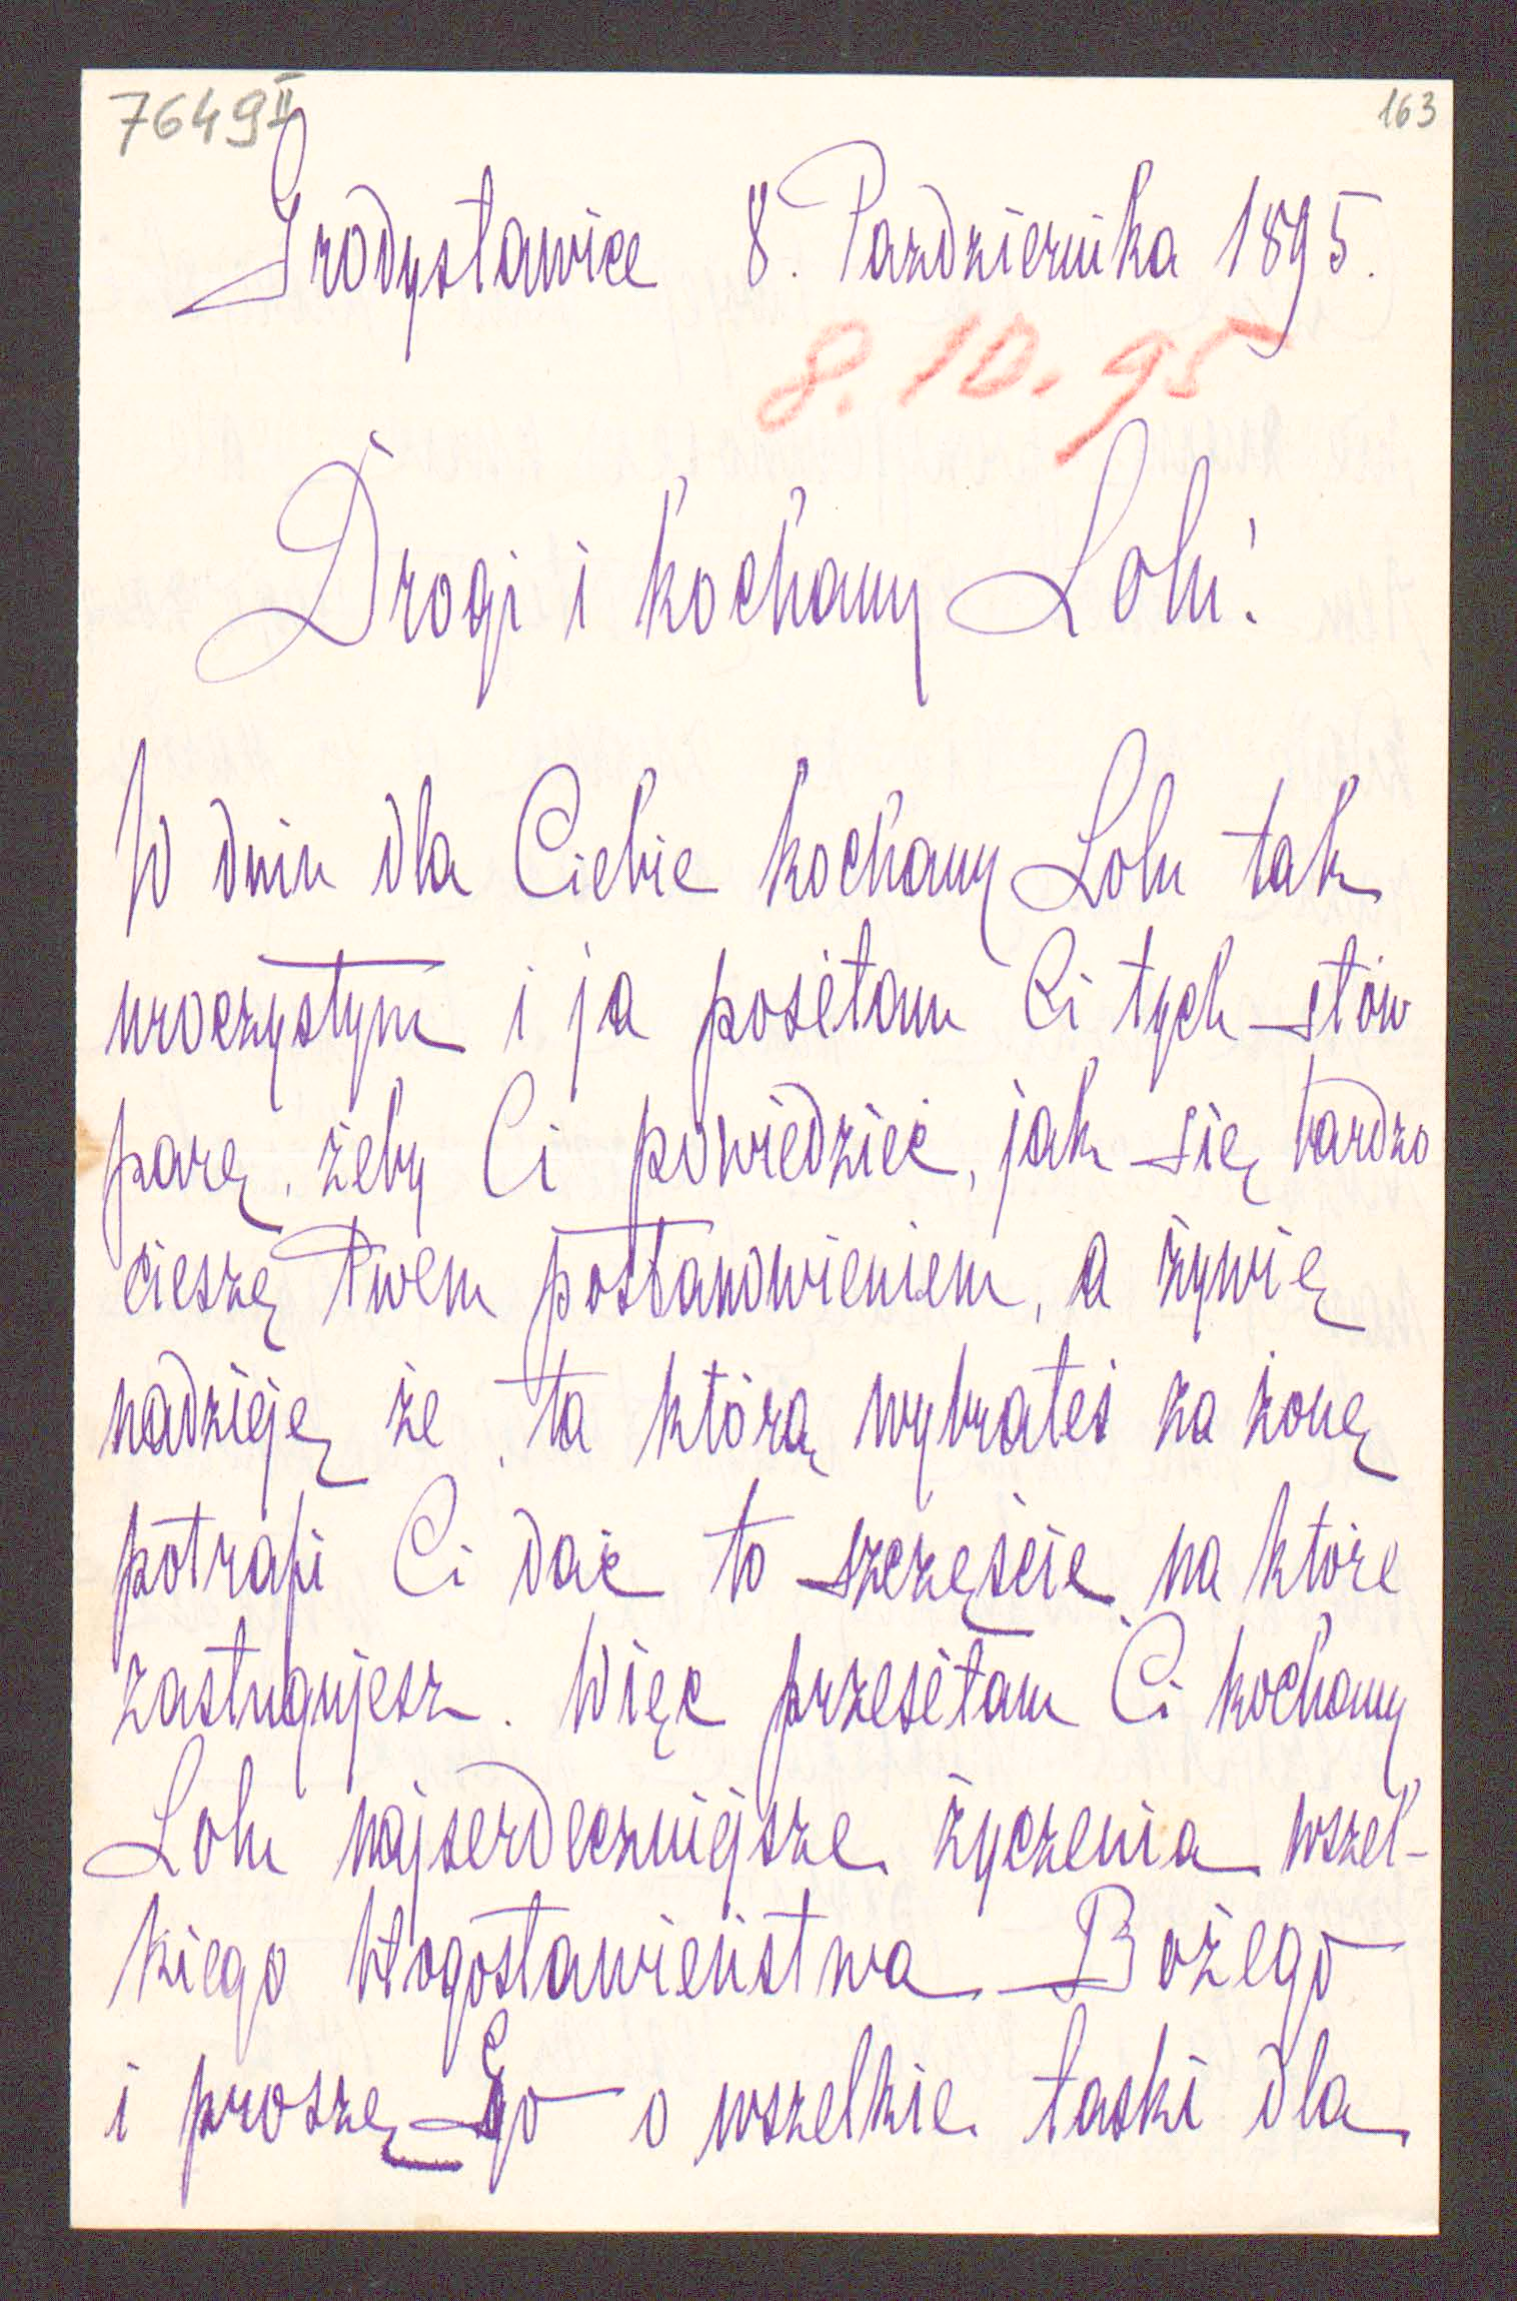 7649 II
163
Grodysławice 8. Pazdziernika 1895.
8.10.95
Drogi i kochany Lolu!
W dniu dla Ciebie kochany Lolu tak
uroczystym i ja posełam Ci tych słów
parę, żeby Ci powiedzieć, jak się bardzo
cieszę Twem postanowieniem, a żywię
nadzieję że, ta którą wybrałeś za żonę
potrafi Ci dać to szczęście, na które
zasługujesz. Więc przesełam Ci kochany
Lolu najserdeczniejsze życzenia wszel-
kiego błogosławieństwa Bożego
i proszę Go o wszelkie łaski dla